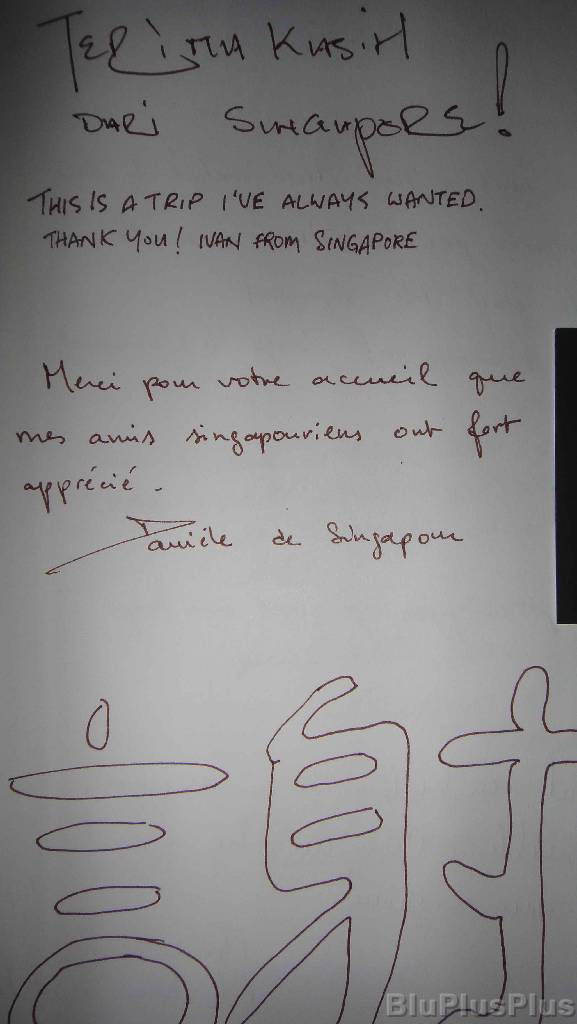 TERIMA KASIH
DARI SINGAPORE!
THIS IS A TRIP I'VE ALWAYS WANTED.
THANK YOU! IVAN FROM SINGAPORE
Merci pour votre accueil que
mes amis singapouriens ont fort
apprécié.
de Singapour
謝
BluPlusPlus